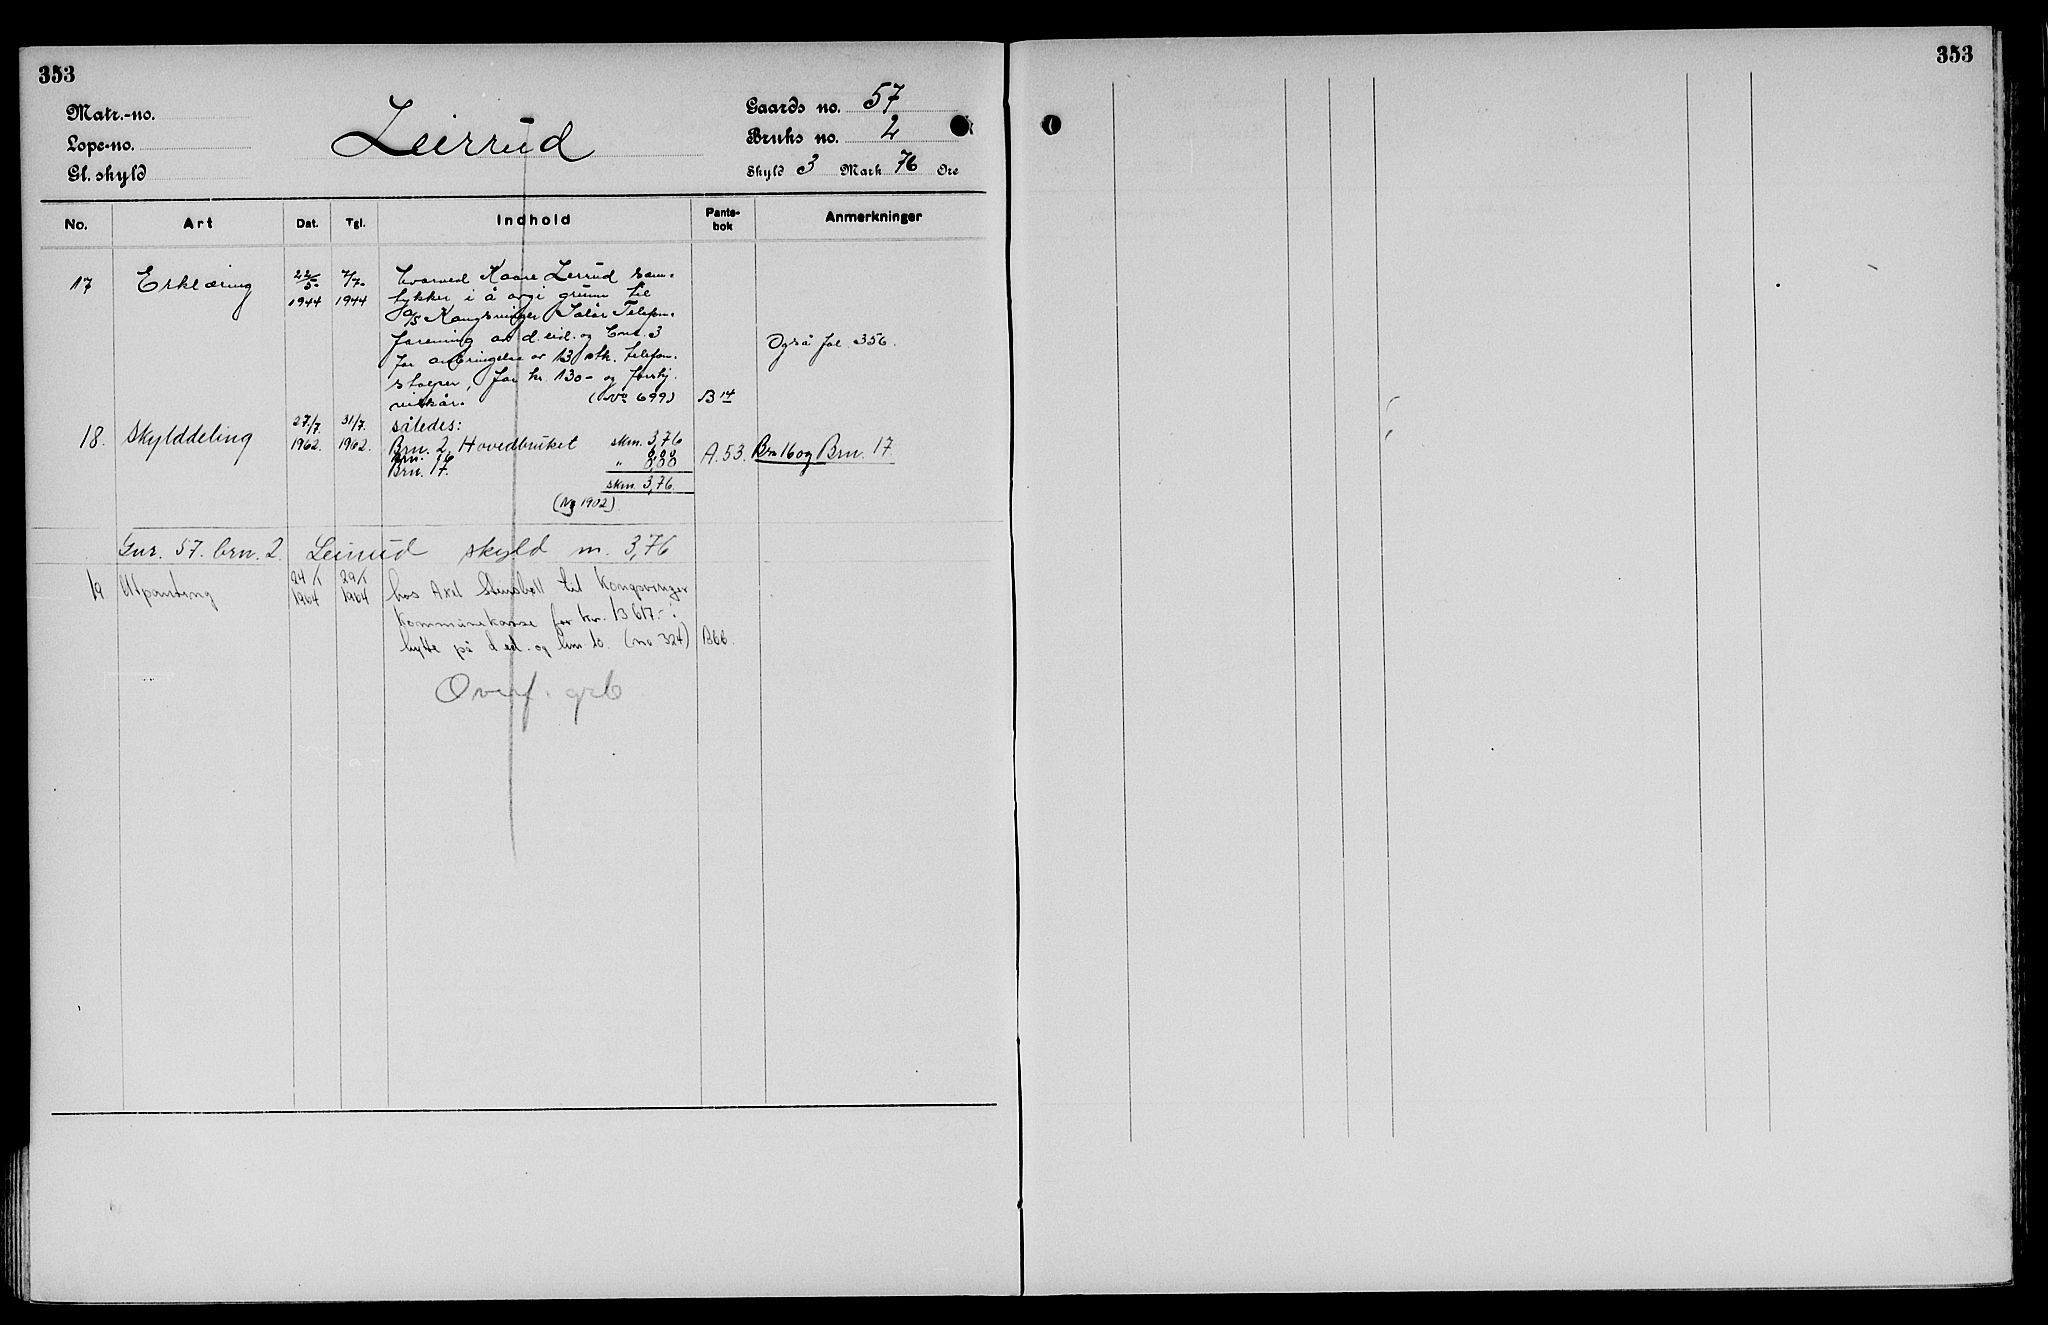 353
353
Matr.-no.
Lope-no.
Gl. skyld
Leirrud
Gaards no. 57
Bruks no. 2
Skyld 3 Mark 76 Øre
No. Art Dat. Tgl. Indhold Pante-bok Anmerkninger
17 Erklæring 22/5. 1944 7/7. 1944 hvorved Kaare Lerrud sam-
tykker i å avgi grunn til
a/s Kongsvinger Solør Telefon-
forening av d. eid. og bnr. 3
for anbringelse av 13 stk. telefon-
stolper, for kr. 130- og forskj.
vilkår. (No 699) B 14
Også fol 356.
18. Skylddeling 27/7. 1962. 31/7. 1962. således:
Brn. 2, Hovedbruket skm. 3,76
Brn. 16 0,00
Brn. 17. " 0,00
skm. 3,76.
(No 1902)
A. 53. Brn 16 og Brn. 17.
Gnr. 57. brn. 2. Leirrud skyld m. 3,76
19 Utpanting 24/1 1964 29/1 1964 hos Axel til Kongsvinger
kommunekasse for kr. 13 617.- i
hytte på d. ed. og brn 10. (no 324) B66.
Overf. grb.